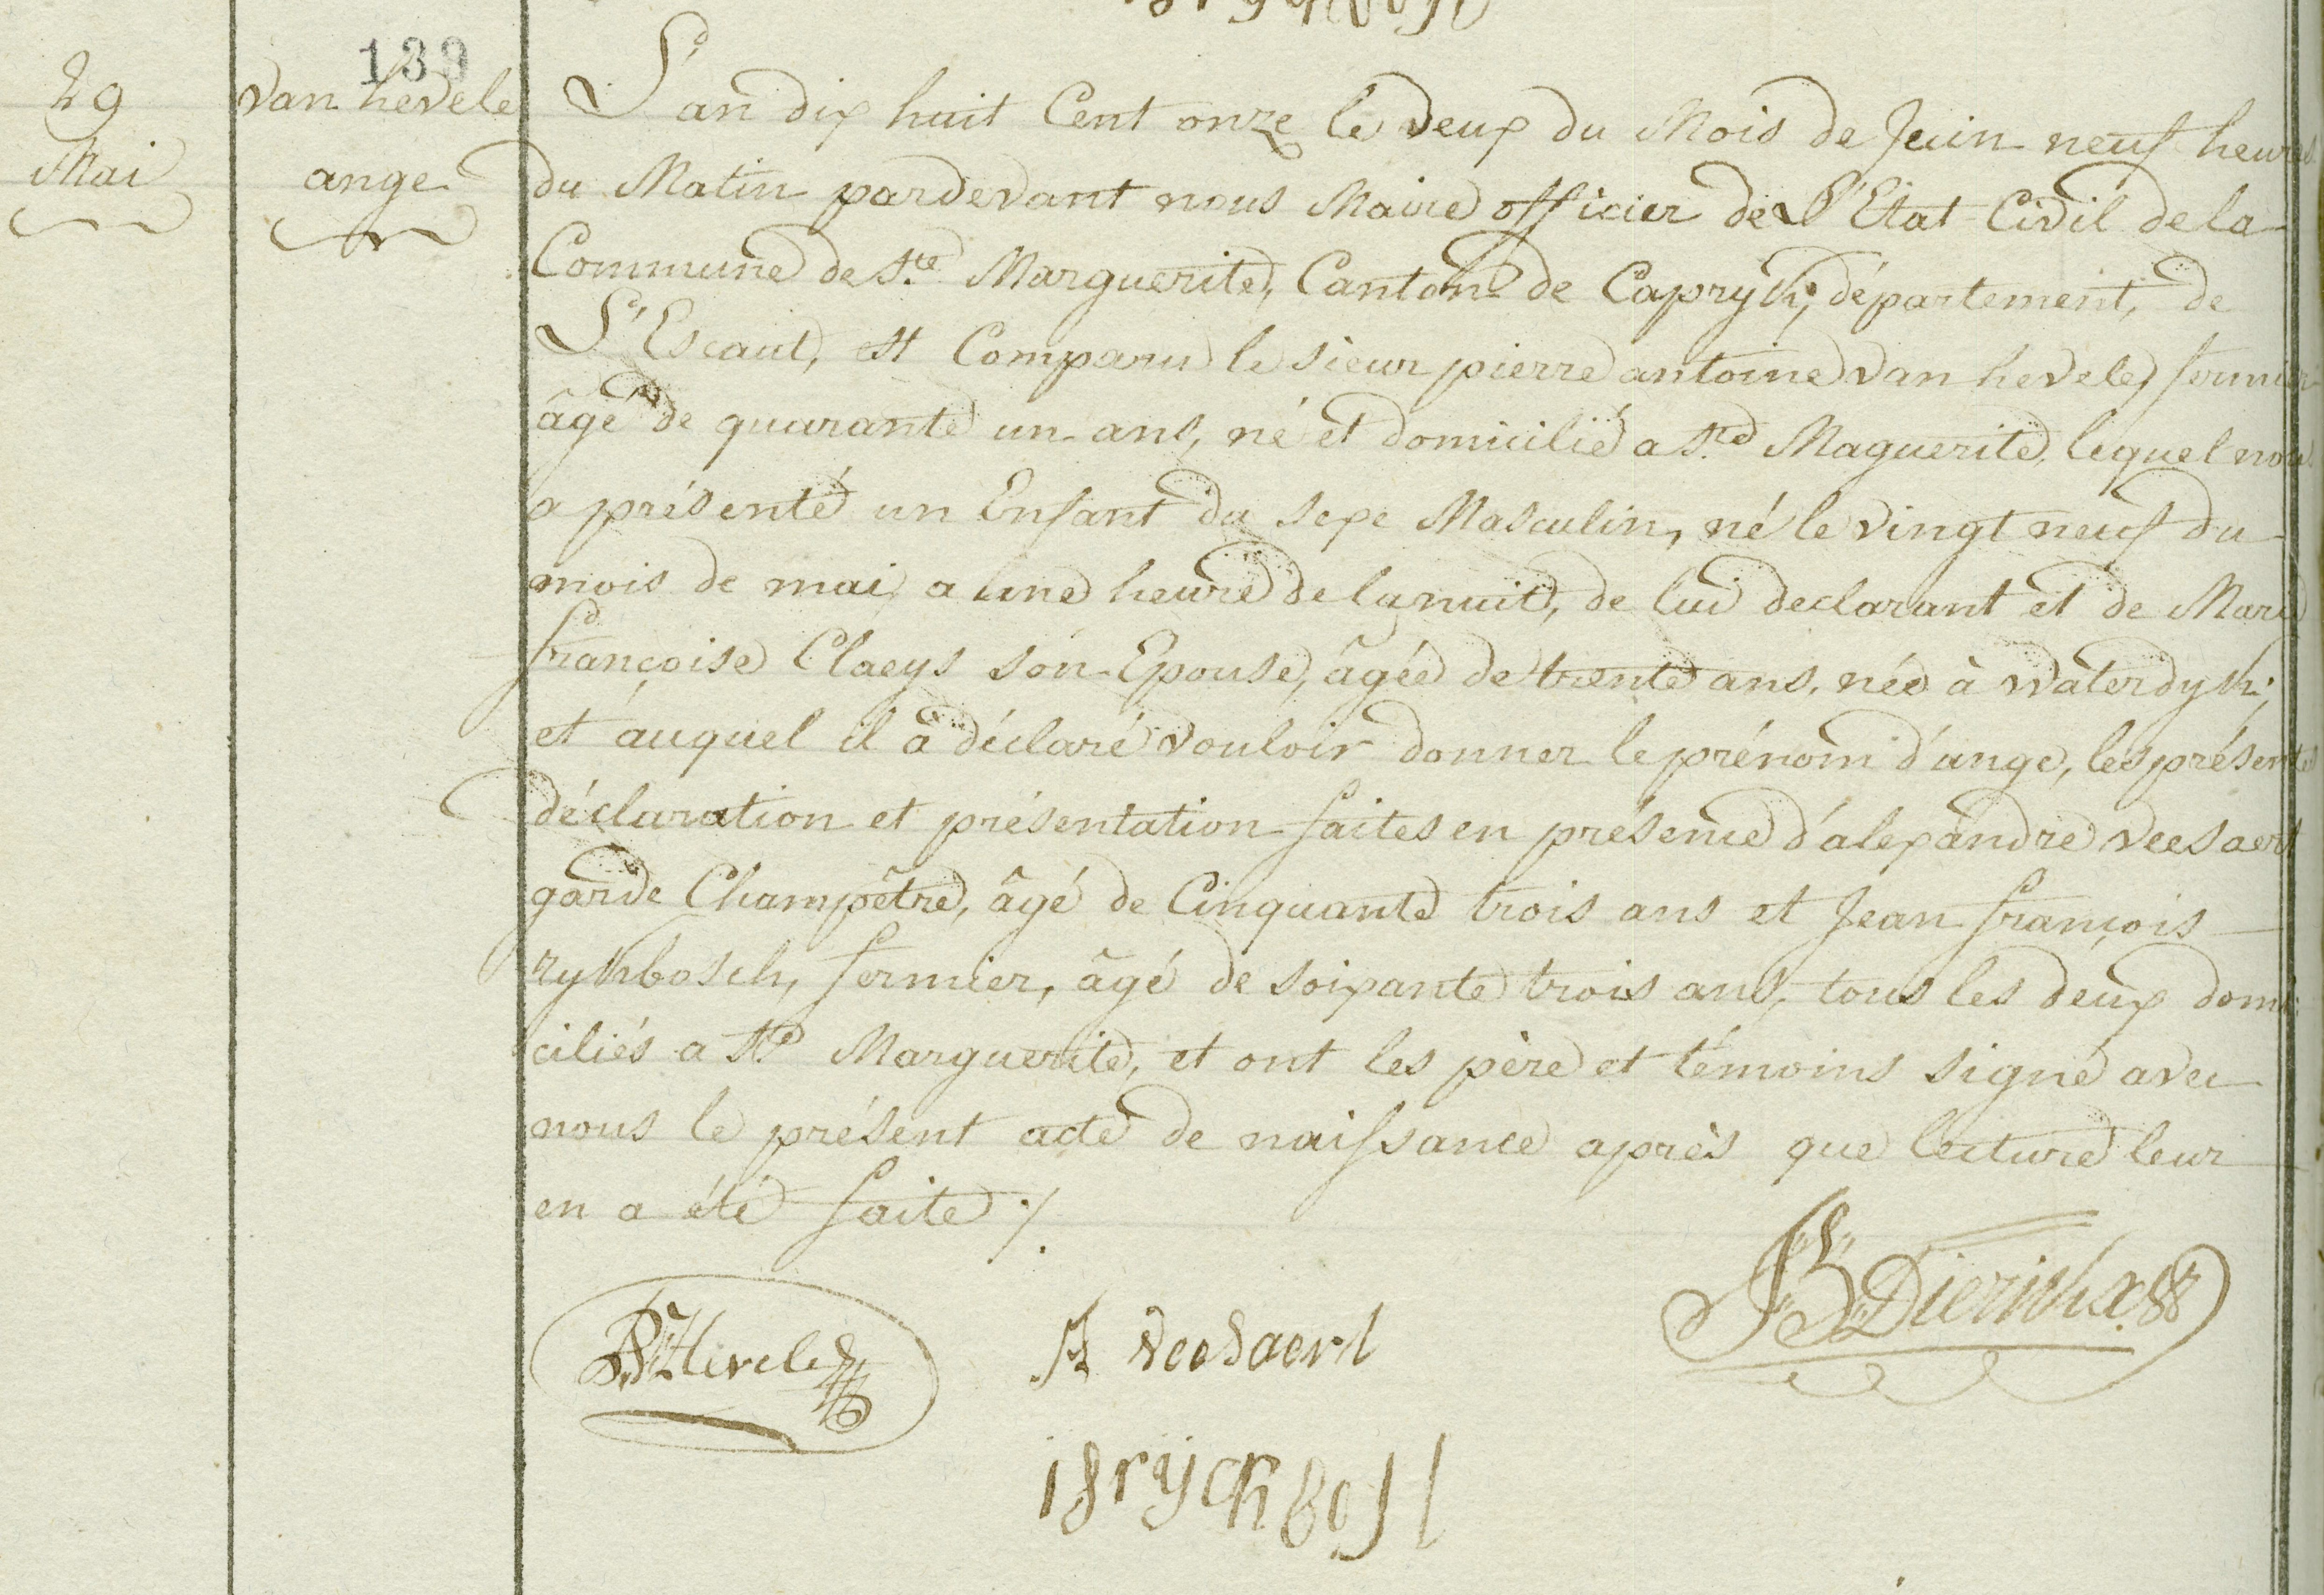 139
29
Mai
van hevele
ange
L'an dix huit Cent onze le deux du Mois de Juin neuf heures
du Matin pardevant nous Maire officier de L'Etat Civil de la
Commune de Ste Marguerite, Canton de Capryk, département, de
L'Escaut, est Comparu le sieur pierre antoine van hevele, fermier
âgé de quarante un ans, né et domicilié a Ste Maguerite, lequel nous
a présenté un Enfant du sexe Masculin, né le vingt neuf du
mois de mai, a une heure de la nuit, de lui declarant et de Marie
françoise Claeys son Epouse, âgée de trente ans, née à Waterdyk,
et auquel il à déclaré vouloir donner le prénom d'ange, les présentes
déclaration et présentation faites en présence d'alexandre veesaert
garde Champêtre, âgé de Cinquante trois ans et Jean françois
rykbosch, fermier, âgé de soixante trois ans, tous les deux domi
ciliés a Ste Marguerite, et ont les père et témoins signé avec
nous le présent acte de naissance après que lecture leur
en a été faite ./.
PVHevele
A veesaert
JBDierickx
rijckbost